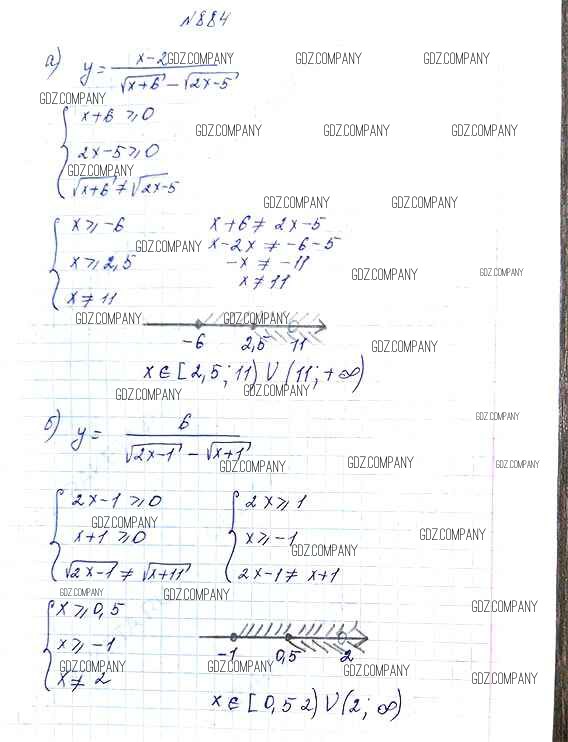 N884
а) y = x-2 / √x+6 - √2x-5
GDZ.COMPANY GDZ.COMPANY GDZ.COMPANY
GDZ.COMPANY
x+6 ⩾ 0
GDZ.COMPANY GDZ.COMPANY GDZ.COMPANY
2x-5 ⩾ 0
GDZ.COMPANY
√x+6 ≠ √2x-5
GDZ.COMPANY GDZ.COMPANY
x ⩾ -6 x+6 ≠ 2x-5
GDZ.COMPANY x-2x ≠ -6-5
x ⩾ 2,5 -x ≠ -11
GDZ.COMPANY GDZ.COMPANY
x ≠ 11 x ≠ 11
GDZ.COMPANY GDZ.COMPANY
-6 2,5 11 GDZ.COMPANY
x ∈ [2,5; 11) U (11; +∞)
GDZ.COMPANY GDZ.COMPANY
GDZ.COMPANY
б) y = 6 / √2x-1 - √x+1
GDZ.COMPANY GDZ.COMPANY GDZ.COMPANY
2x-1 ⩾ 0 2x ⩾ 1
GDZ.COMPANY
x+1 ⩾ 0 x ⩾ -1 GDZ.COMPANY
GDZ.COMPANY
√2x-1 ≠ √x+11 2x-1 ≠ x+1
GDZ.COMPANY GDZ.COMPANY
x ⩾ 0,5 GDZ.COMPANY
x ⩾ -1 -1 0,5 2
GDZ.COMPANY GDZ.COMPANY GDZ.COMPANY
x ≠ 2 GDZ.COMPANY
x ∈ [0,5 2) U (2; ∞)